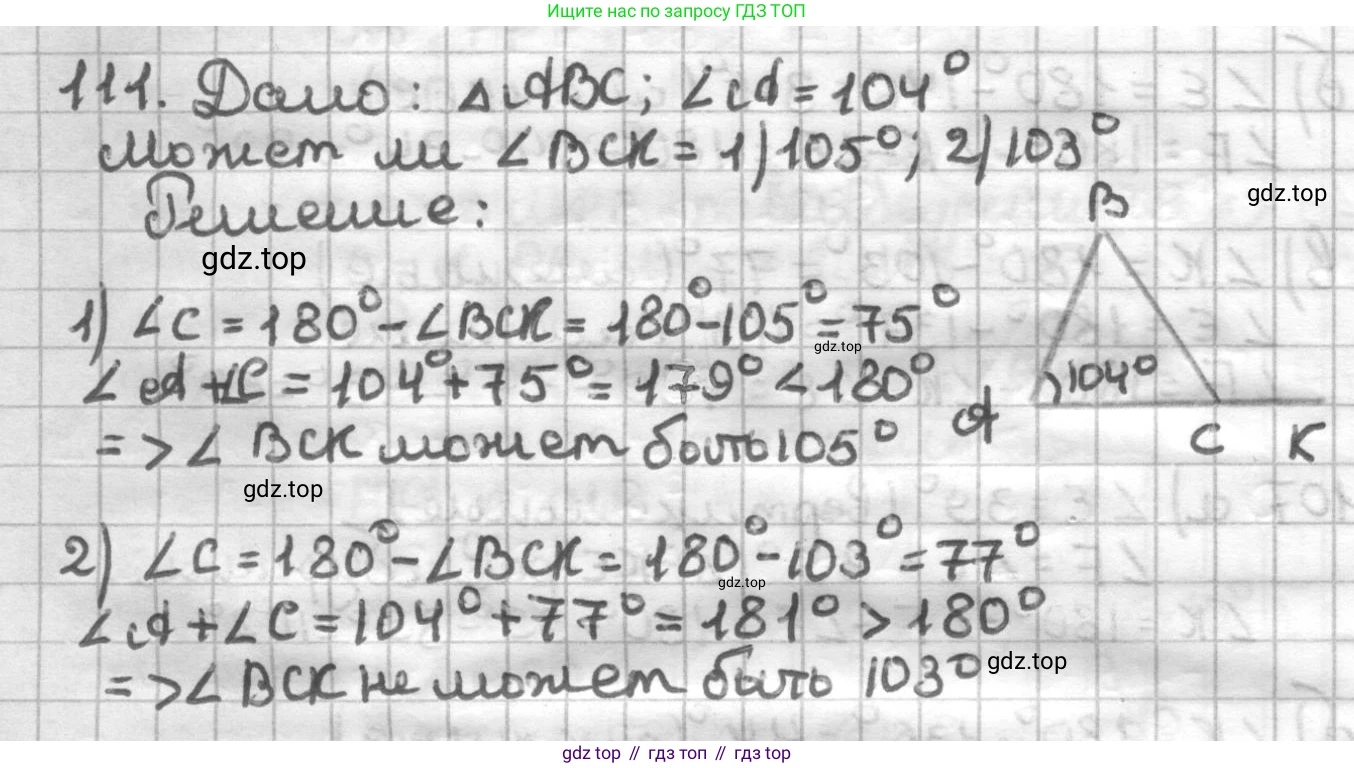 Ищите нас по запросу ГДЗ ТОП
111. Дано: △ABC; ∠A = 104°
может ли ∠BCK = 1) 105°; 2) 103°
Решение:
gdz.top
gdz.top
B
1) ∠C = 180° - ∠BCK = 180° - 105° = 75°
gdz.top
∠A + ∠C = 104° + 75° = 179° < 180°
104°
A
C
K
=> ∠BCK может быть 105°
gdz.top
2) ∠C = 180° - ∠BCK = 180° - 103° = 77°
gdz.top
∠A + ∠C = 104° + 77° = 181° > 180°
=> ∠BCK не может быть 103°
gdz.top
gdz top // гдз топ // gdz top